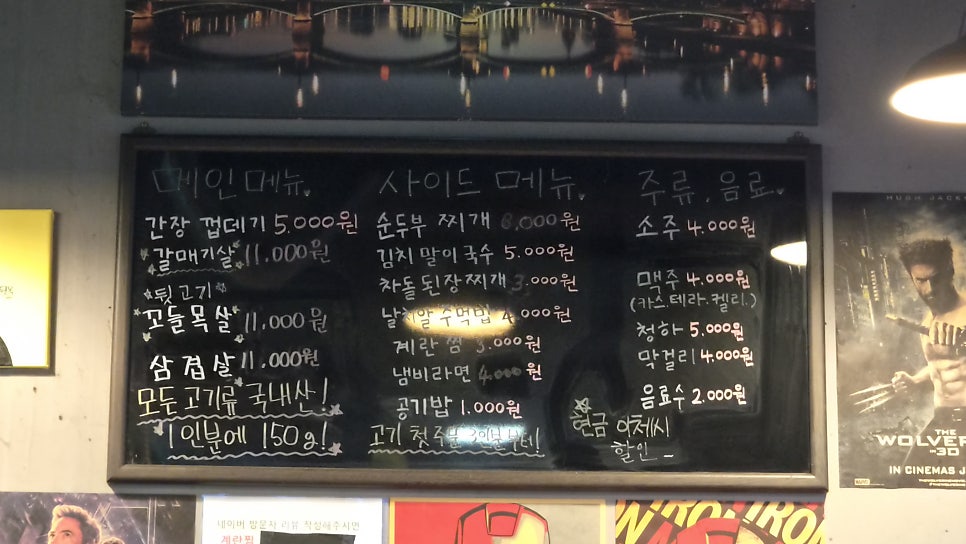 메인 메뉴
간장 껍데기 5.000원
갈매기살 11.000원
뒷고기
꼬들목살 11.000원
삼겹살 11.000원
모두 고기류 국내산!
1인분에 150g!
사이드 메뉴
순두부 찌개 6,000원
김치말이국수 5.000원
차돌된장찌개 3.000원
날치알 주먹밥 4.000원
계란찜 3.000원
냄비라면 4.000원
공기밥 1.000원
고기 첫주문 3인분부터!
주류, 음료
소주 4.000원
맥주 4.000원
(카스.테라.켈리.)
청하 5.000원
막걸리 4.000원
음료수 2.000원
현금 이체시
할인
HUGH JACK
THE
WOLVER
IN 3D
IN CINEMAS J
네이버 방문자 리뷰 작성해주시면
계란찜